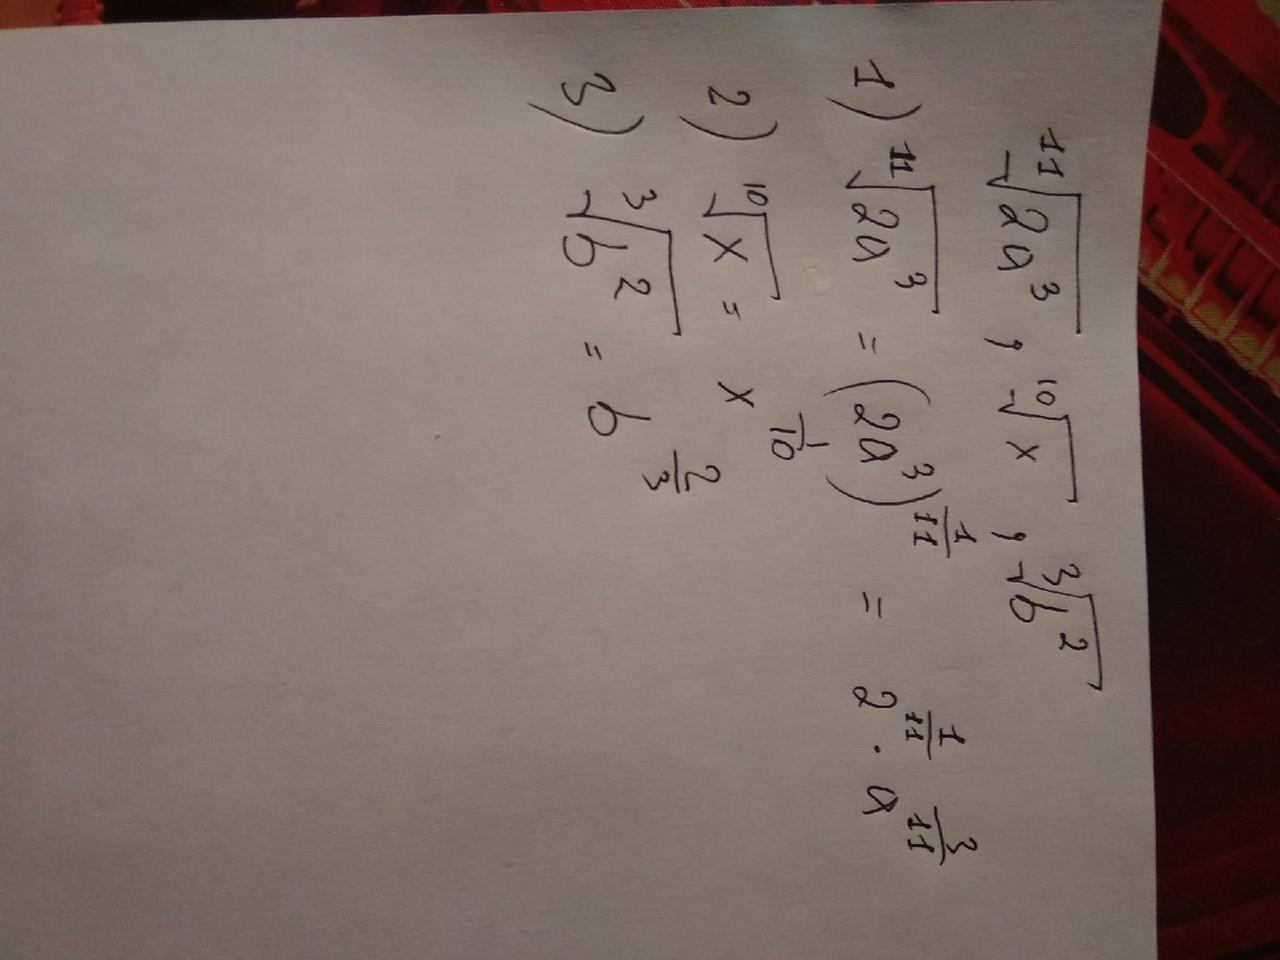 ¹¹√2a³ , ¹⁰√x , ³√b²
1) ¹¹√2a³ = (2a³)^(1/11) = 2^(1/11) · a^(3/11)
2) ¹⁰√x = x^(1/10)
3) ³√b² = b^(2/3)